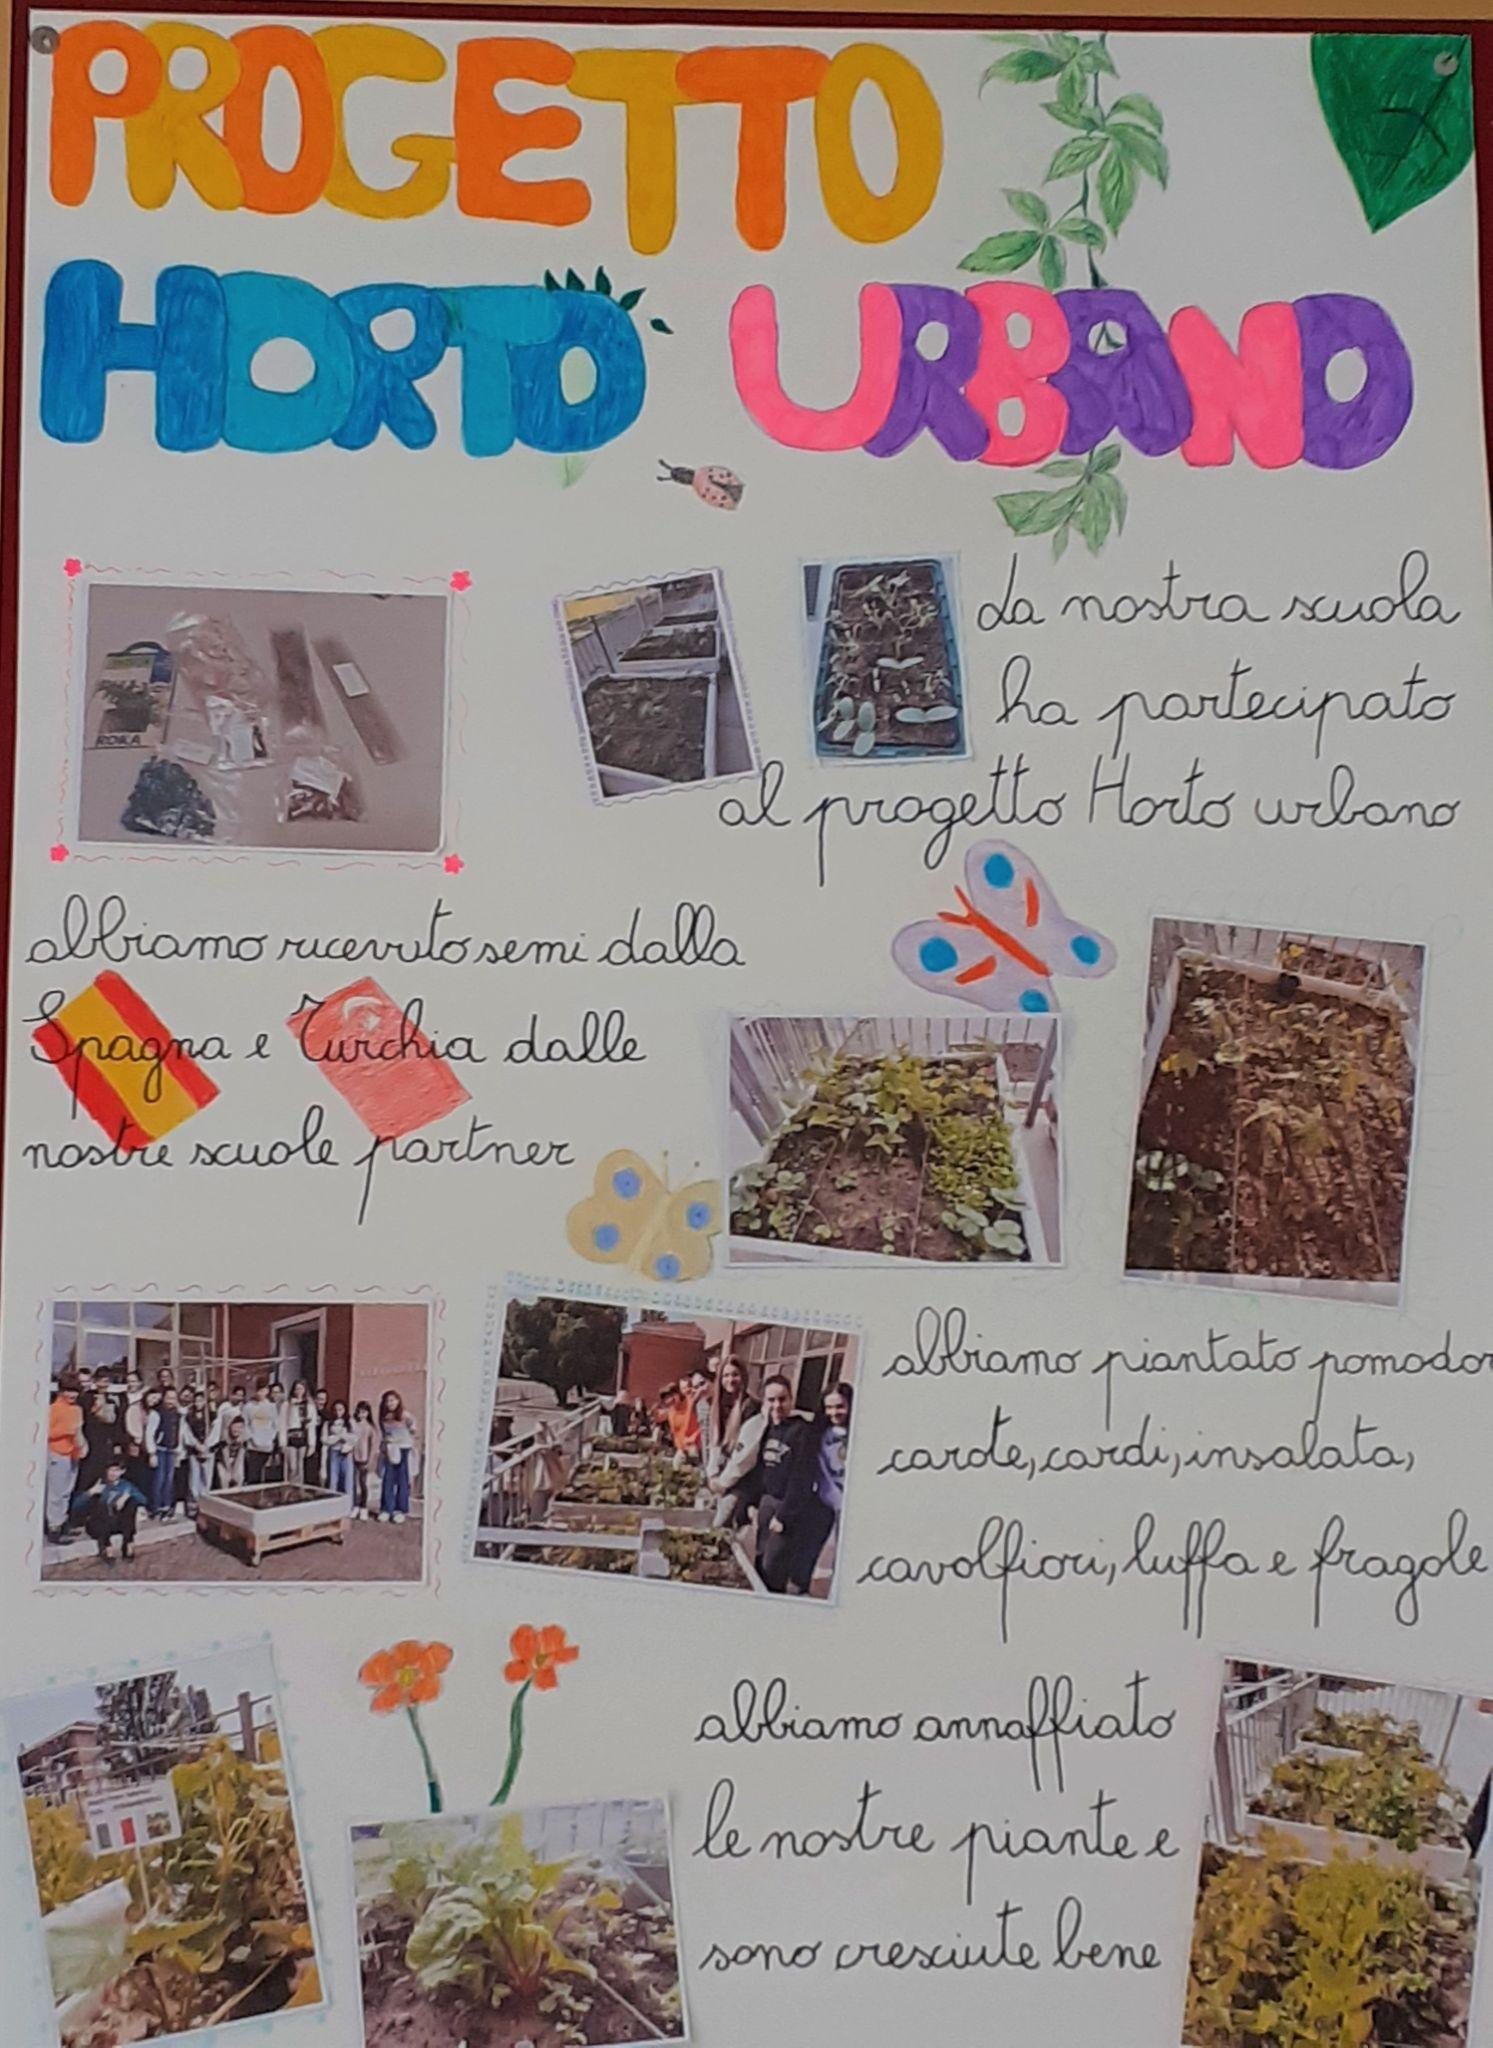 PROGETTO
HORTO URBANO
ROKA
La nostra scuola
ha partecipato
al progetto Horto urbano
abbiamo ricevuto semi dalla
Spagna e Turchia dalle
nostre scuole partner
abbiamo piantato pomodor
carote, cardi, insalata,
cavolfiori, luffa e fragole
abbiamo annaffiato
le nostre piante e
sono cresciute bene